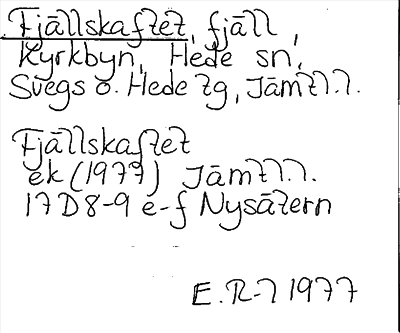 Fjällskaftet, fjäll,
Kyrkbyn, Hede sn,
Svegs o. Hede tg, Jämtl.l.
Fjällskaftet
ek (1977) Jämtl.l.
17D8-9 e-f Nysätern
E.R-l 1977